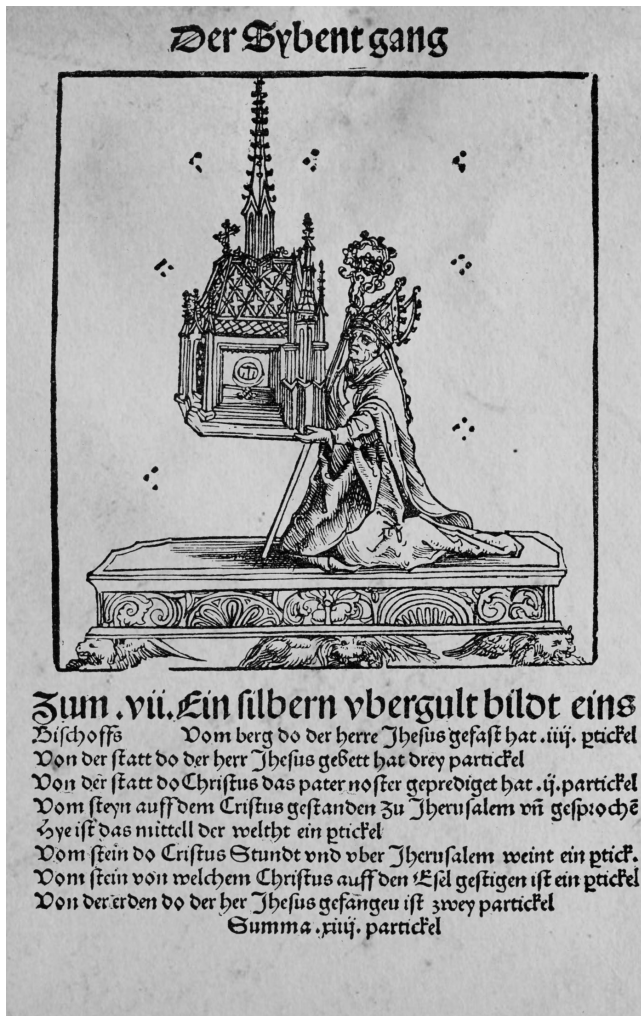 Der Sybent gang
Zum .vii. Ein silbern vbergult bildt eins
Bischoffs Vom berg do der herre Jhesus gefast hat .iiij. ꝑtickel
Von der statt do der herr Jhesus gebett hat drey partickel
Von der statt do Christus das pater noster geprediget hat .ij. partickel
Vom steyn auff dem Cristus gestanden zu Jherusalem vn̄ gesprochē
Hye ist das mittell der weltht ein ꝑtickel
Vom stein do Cristus Stundt vnd vber Jherusalem weint ein ꝑtick.
Vom stein von welchem Christus auff den Esel gestigen ist ein ꝑtickel
Von der erden do der her Jhesus gefangeu ist zwey partickel
Summa .xiiij. partickel